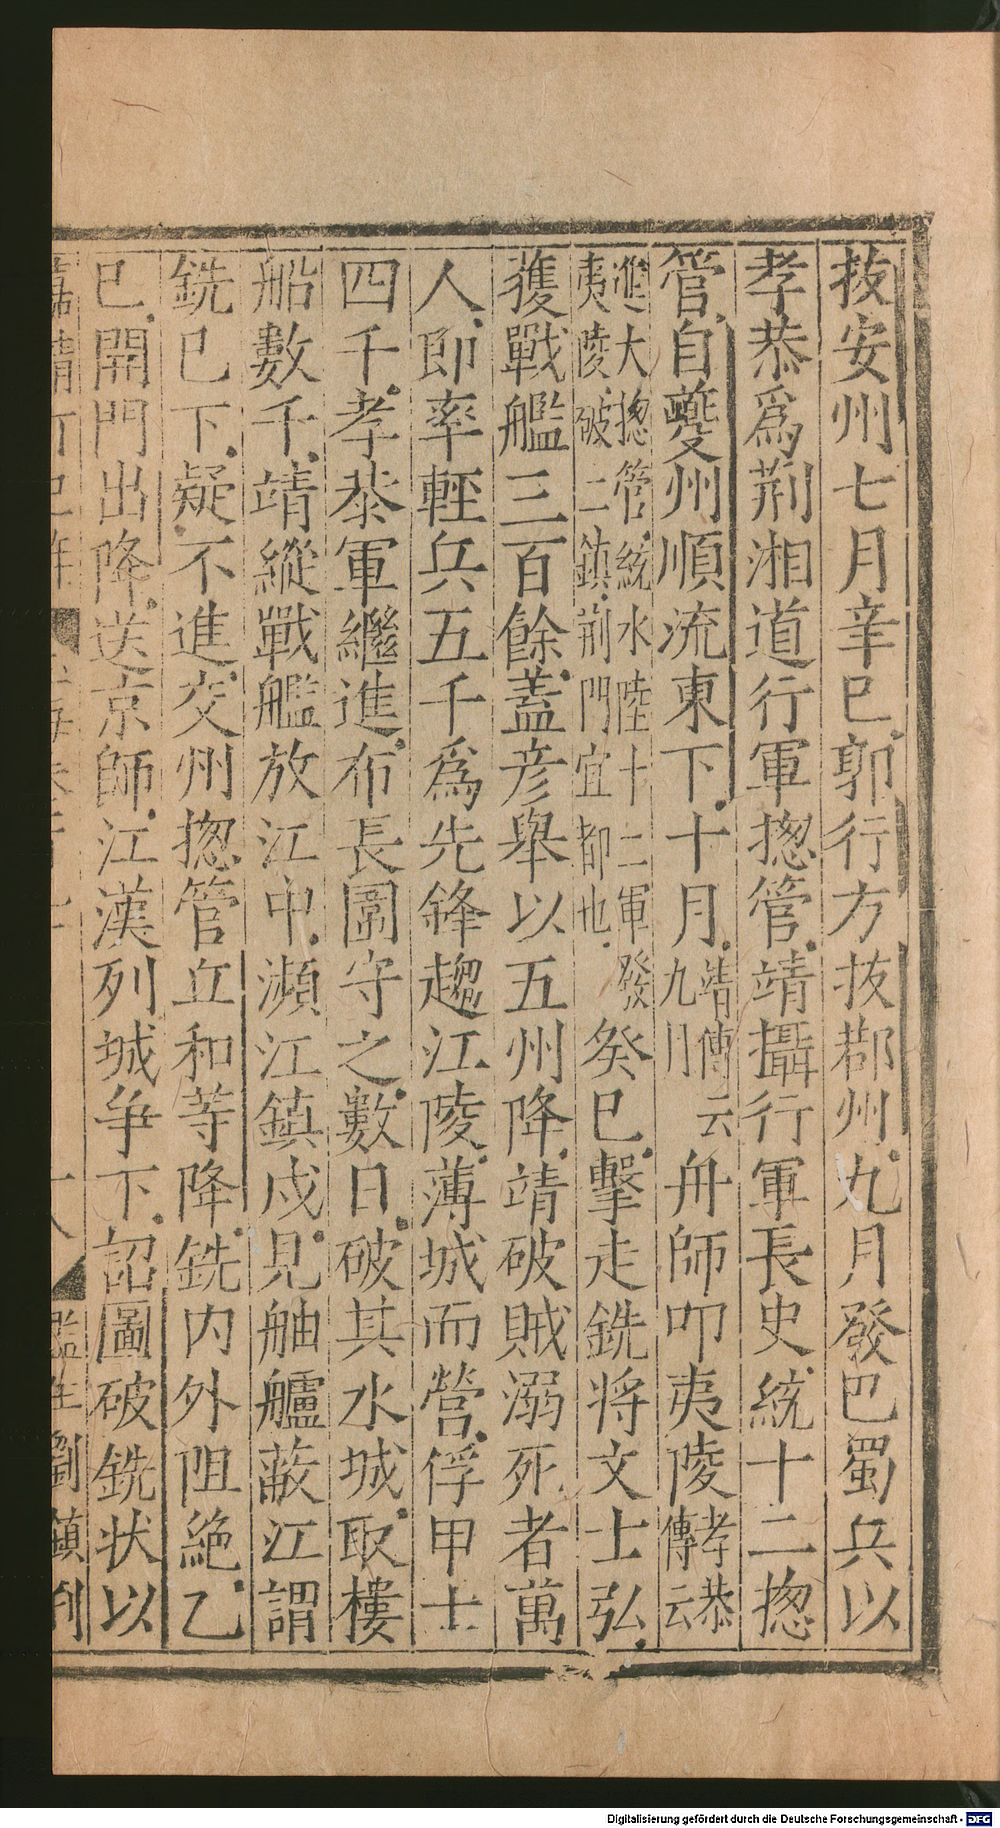 抜安州七月辛巳郭行方抜鄀州九月發巴蜀兵以
孝恭爲荆湘道行軍揔管靖攝行軍長史統十二揔
管自夔州順流東下十月靖傳云九月舟師叩夷陵孝恭傳云
進大揔管統水陸十二軍發夷陵破二鎮荆門宜都也癸巳擊走銑将文士弘
獲戰艦三百餘蓋彦舉以五州降靖破賊溺死者萬
人即率輕兵五千爲先鋒趨江陵薄城而營俘甲士
四千孝恭軍繼進布長圍守之數日破其水城取樓
船數千靖縱戰艦放江中瀕江鎮戍見舳艫蔽江謂
銑已下疑不進交州揔管丘和等降銑内外阻絶乙
已開門出降送京師江漢列城争下詔圖破銑状以
監生劉鎮
Digitalisierung gefördert durch die Deutsche Forschungsgemeinschaft - DFG